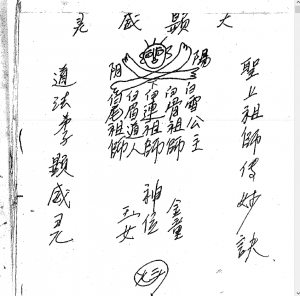 大顯威灵
聖上祖師傳妙訣
陽
白雪公主
白骨祖師
白蓮祖師
白眉道人
祖師
阴
金童
神位
玉女
道法李顯威灵